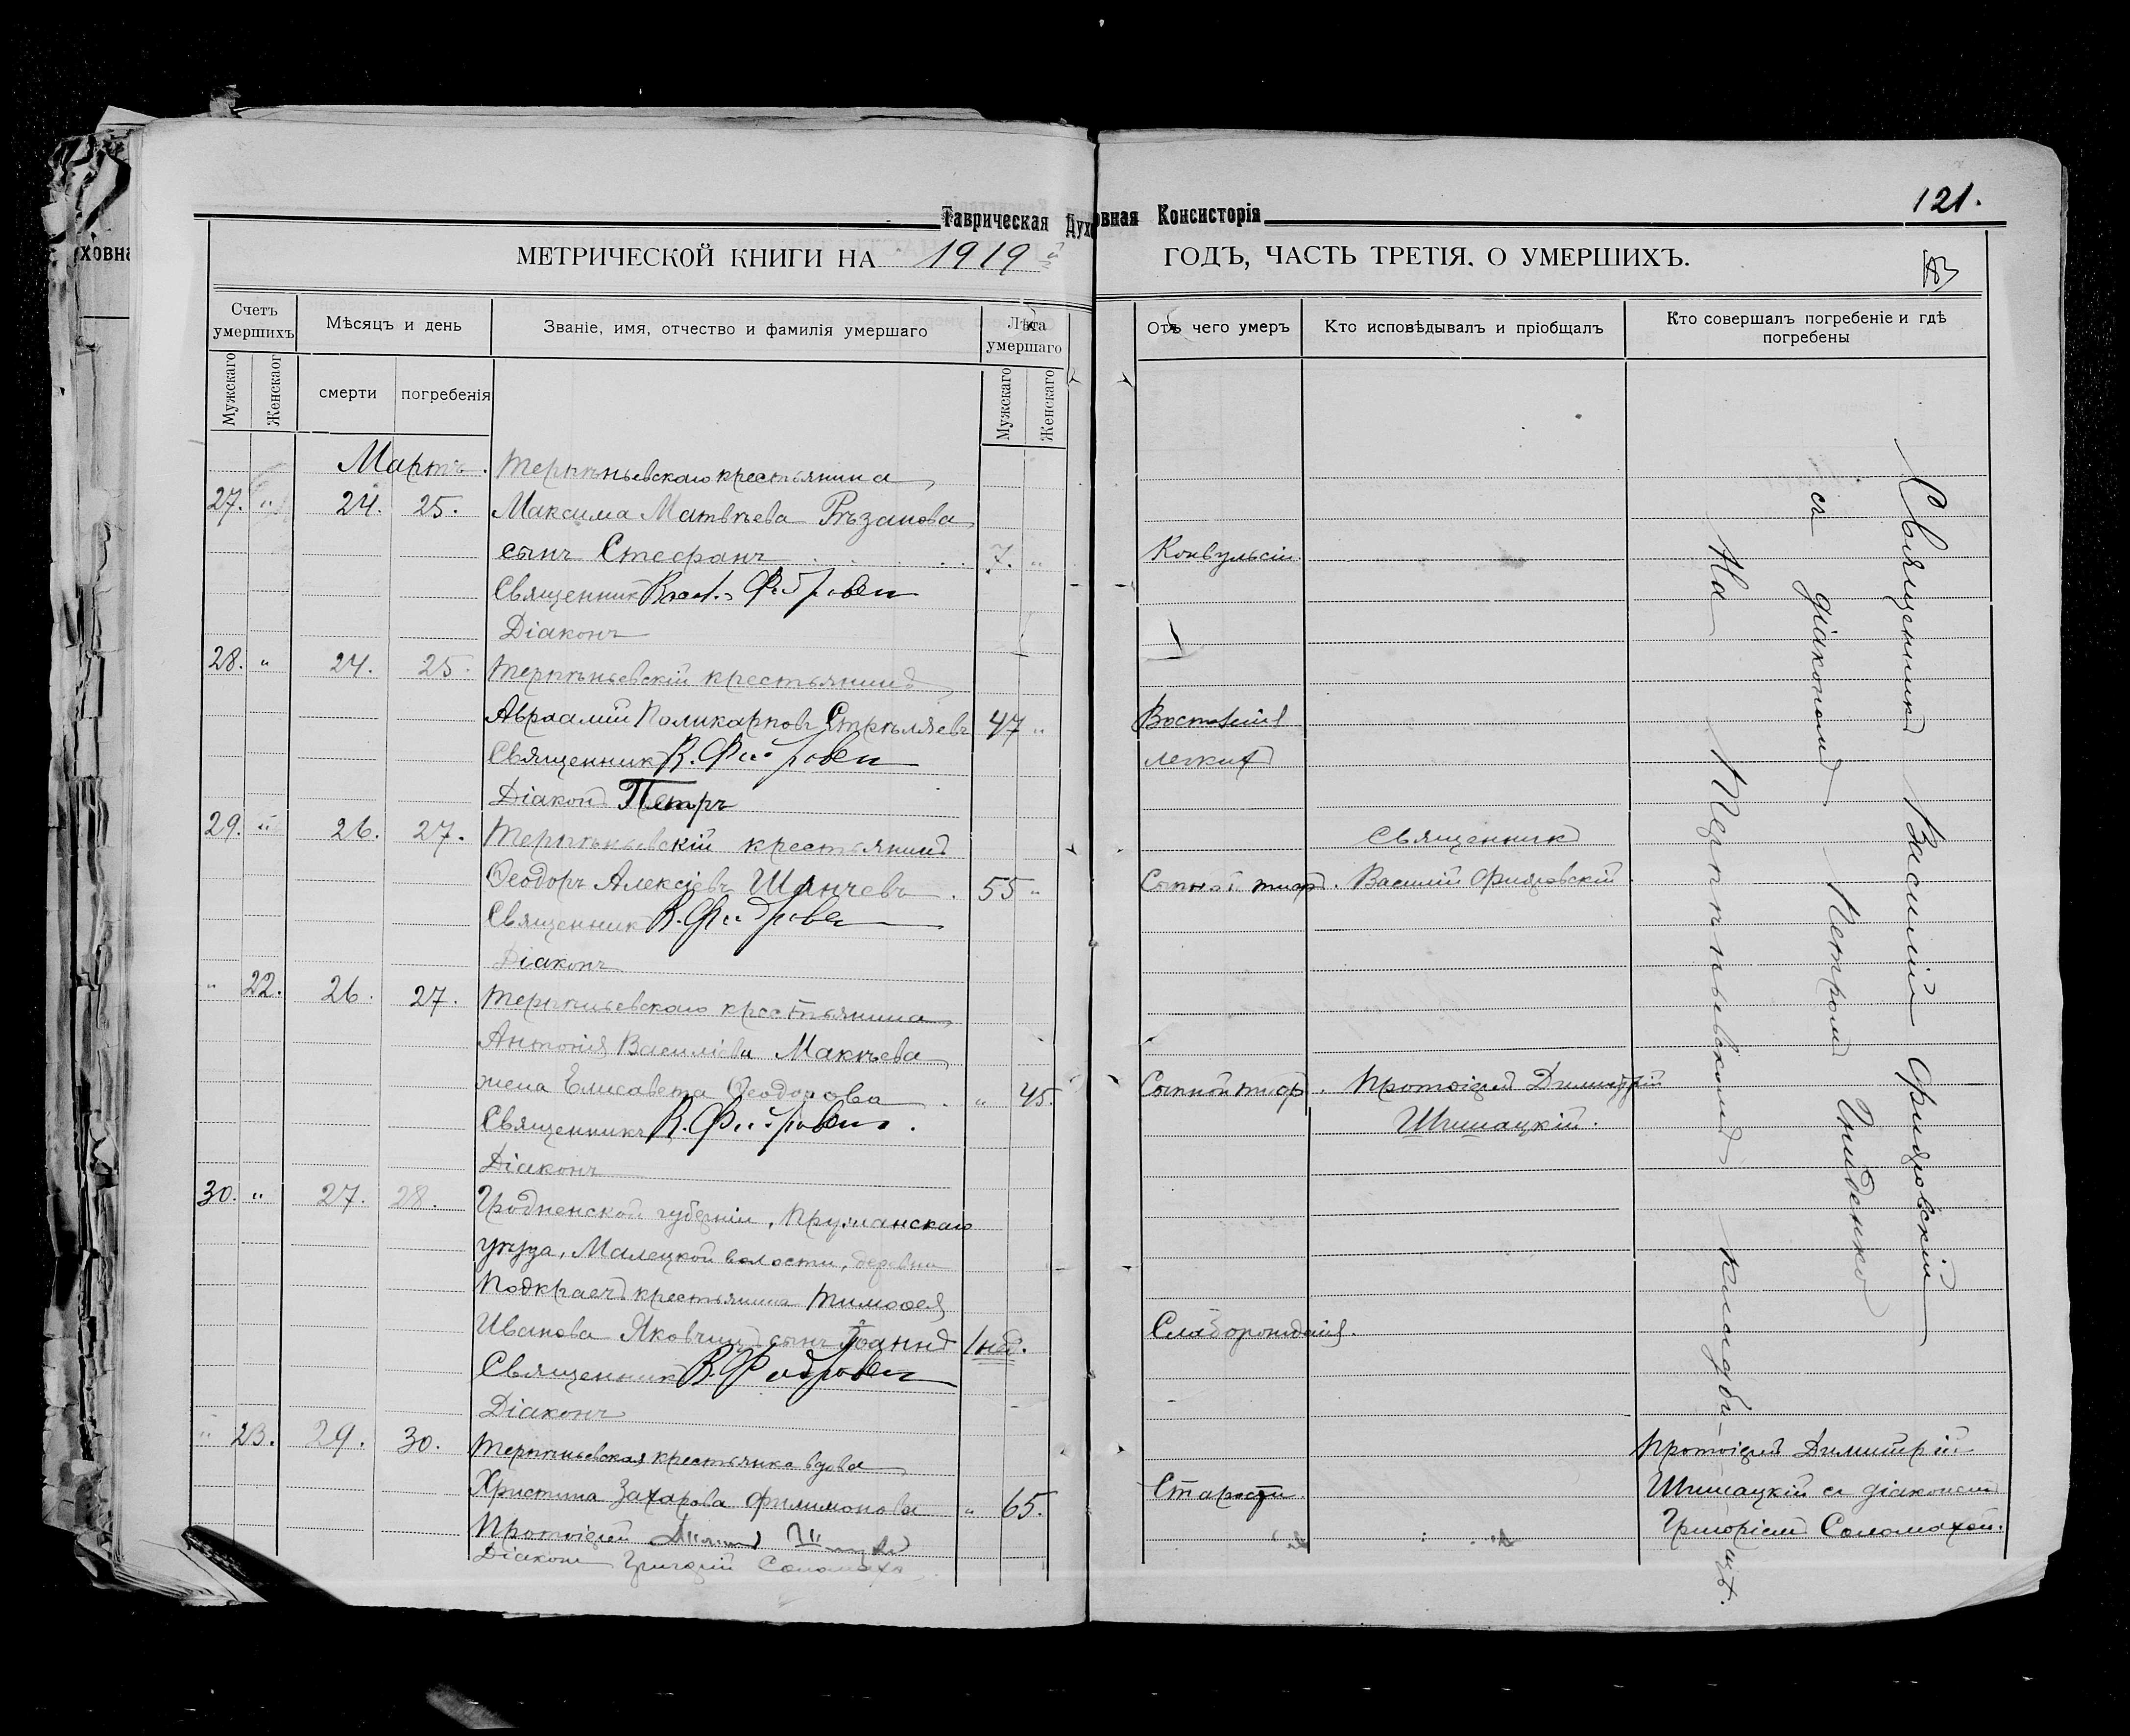 Таврическая Духовная Консисторія
121.
МЕТРИЧЕСКОЙ КНИГИ НА 1919й ГОДЪ, ЧАСТЬ ТРЕТІЯ, О УМЕРШИХЪ.
Счетъ умершихъ
Мѣсяцъ и день
Званіе, имя, отчество и фамилія умершаго
Лѣта умершаго
Отъ чего умеръ
Кто исповѣдывалъ и пріобщалъ
Кто совершалъ погребеніе и гдѣ погребены
Мужскаго
Женскаог
смерти
погребенія
Мужскаго
Женскаго
Мартъ. Терпѣньевскаго крестьянина
27. " 24. 25. Максима Матвѣева Рѣзанова
сынъ Стефанъ 7. " Конвульсіи.
Священник
Діаконъ
28. " 24. 25. Терпѣньевскій крестьянинъ
Авраамій Поликарповъ Стрѣляевъ 47 " Воспаленія
Священник легкихъ
Діаконъ Петръ
29. " 26. 27. Терпѣньевскій крестьянинъ Священникъ
Ѳеодоръ Алексіевъ Шанчевъ. 55 " Сыпной тифъ. Василій Фидровскій.
Священник
Діаконъ
" 22. 26. 27. Терпѣньевскаго крестьянина
Антонія Василіева Макѣева
жена Елисавета Ѳеодорова. " 45. Сыпной тифъ. Протоіерей Димитрій
Священникъ Шишацкій.
Діаконъ
30. " 27. 28. Гродненской губерніи, Пружанскаго
уѣзда, Малецкой волости, деревни
Подкраечъ крестьянина Тимофея
Иванова Яковчицъ сынъ Іоаннъ 1 нед. Слаборожденія.
Священник
Діаконъ
" 23. 29. 30. Терпѣньевская крестьянка вдова Протоіерей Димитрій
Христина Захарова Филимонова " 65. Старости. Шишацкій съ діакономъ
Протоіерей Григоріемъ Соломахой.
Діаконъ Григорій Соломаха.
Священникъ Василій Фидровскій
съ діакономъ Петромъ Гниденко
На Терпѣньевскомъ кладбищѣ.